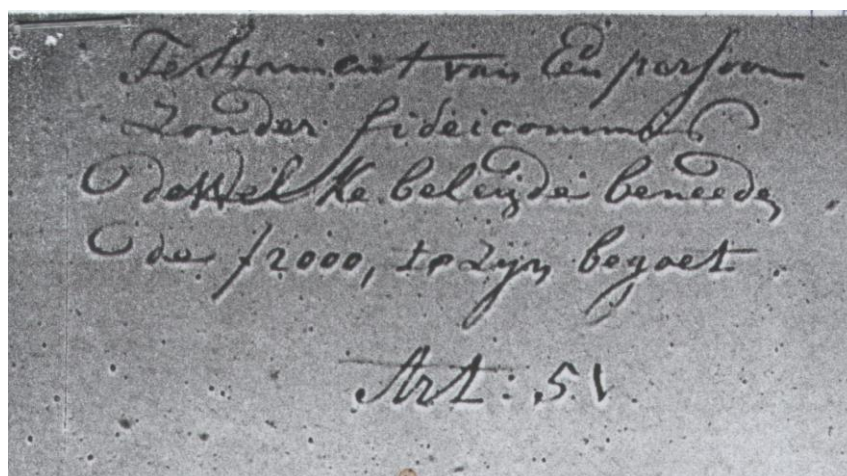 Testament van Een persoon
zonder fideicommis
dewelke beleijde beneede,
de ƒ2000, te zijn begoet.
Art: 51.